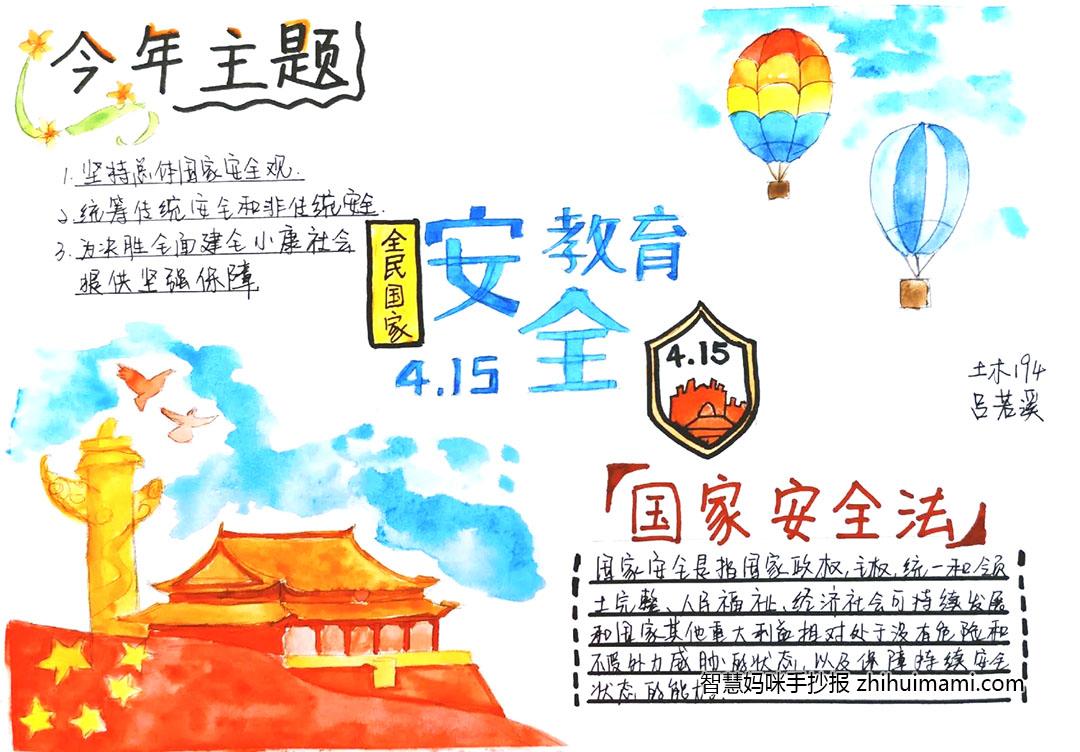 今年主题
1. 坚持总体国家安全观.
2. 统筹传统安全和非传统安全.
3. 为决胜全面建全小康社会
提供坚强保障
全民国家
安全
教育
4.15
4.15
土木194
吕若溪
国家安全法
国家安全是指国家政权,主权,统一和领
土完整、人民福祉、经济社会可持续发展
和国家其他重大利益相对处于没有危险和
不受外力威胁的状态,以及保障持续安全
状态的能
智慧妈咪手抄报 zhihuimami.com